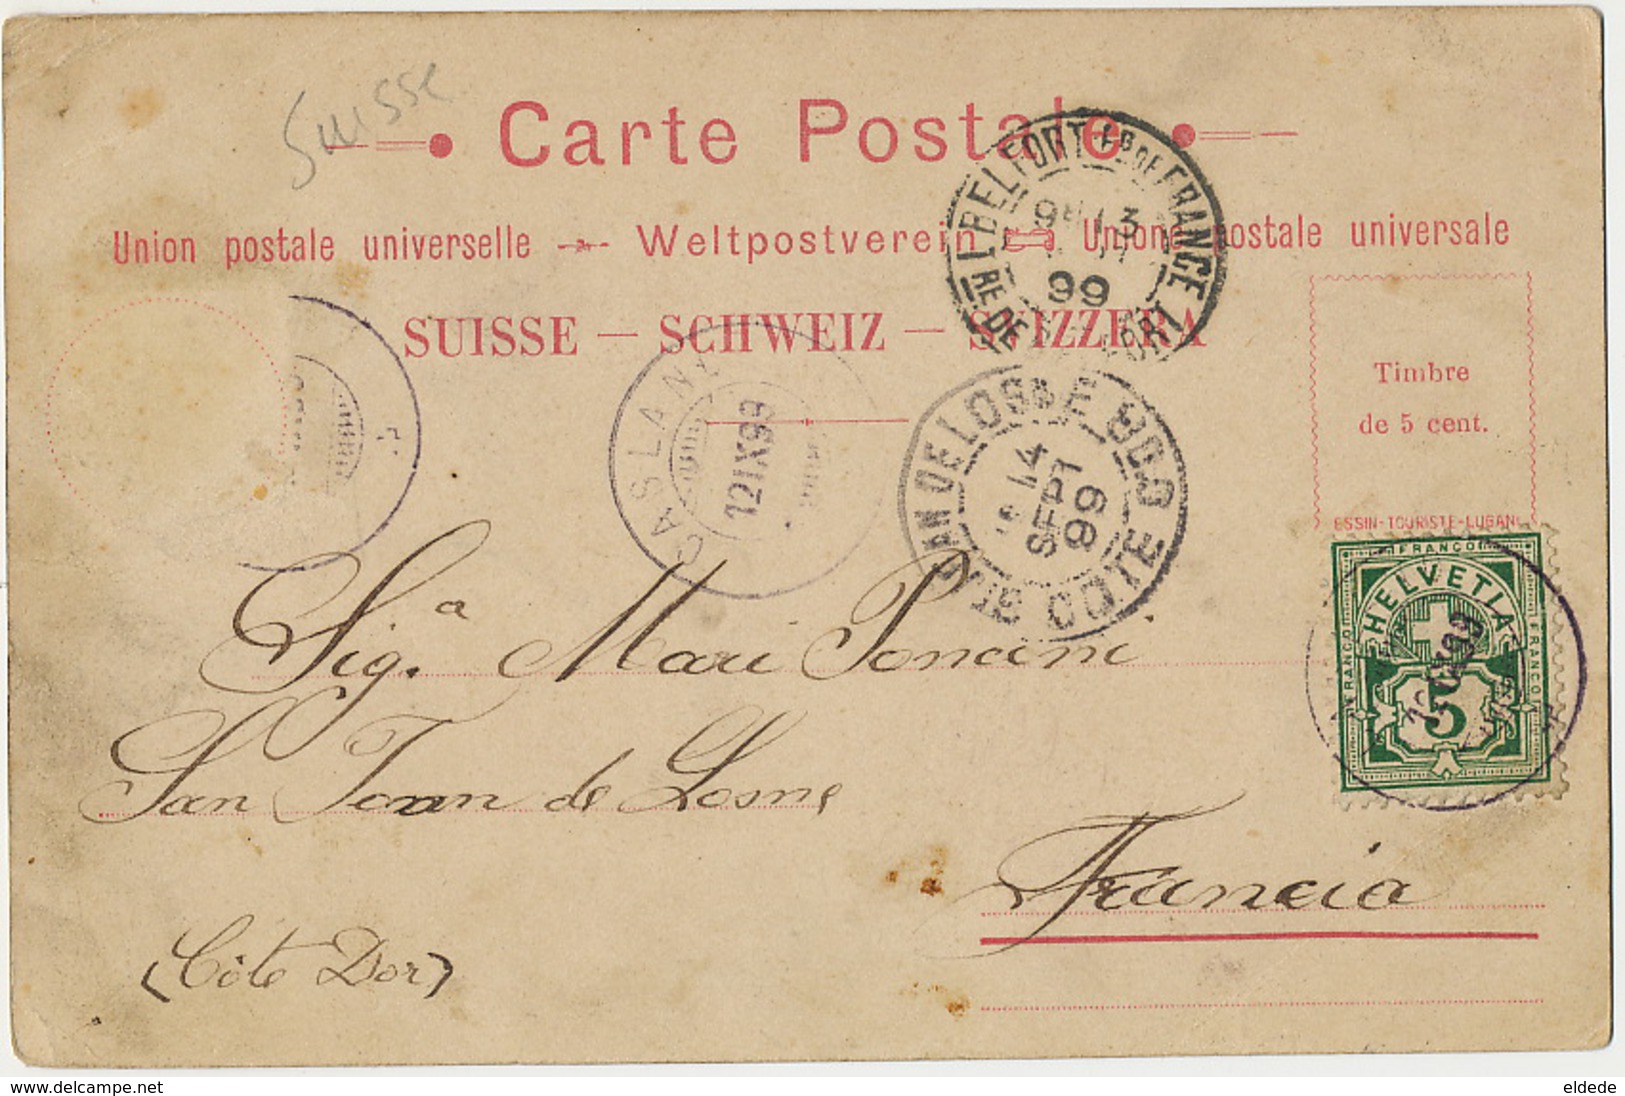 Suisse
Carte Postale
Union postale universelle Weltpostverein Unione postale universale
SUISSE — SCHWEIZ — SVIZZERA
BELFORT
13
99
CASLANO
12 IX 99
ST JEAN DE LOSNE COTE D'OR
14
SEPT
99
Timbre
de 5 cent.
ESSIN-TOURISTE-LUGANO
FRANCO
HELVETIA
FRANCO
FRANCO
5
Sig.a Mari Poncini
San Jean de Losne
Francia
(Côte Dor)
www.delcampe.net
eldede